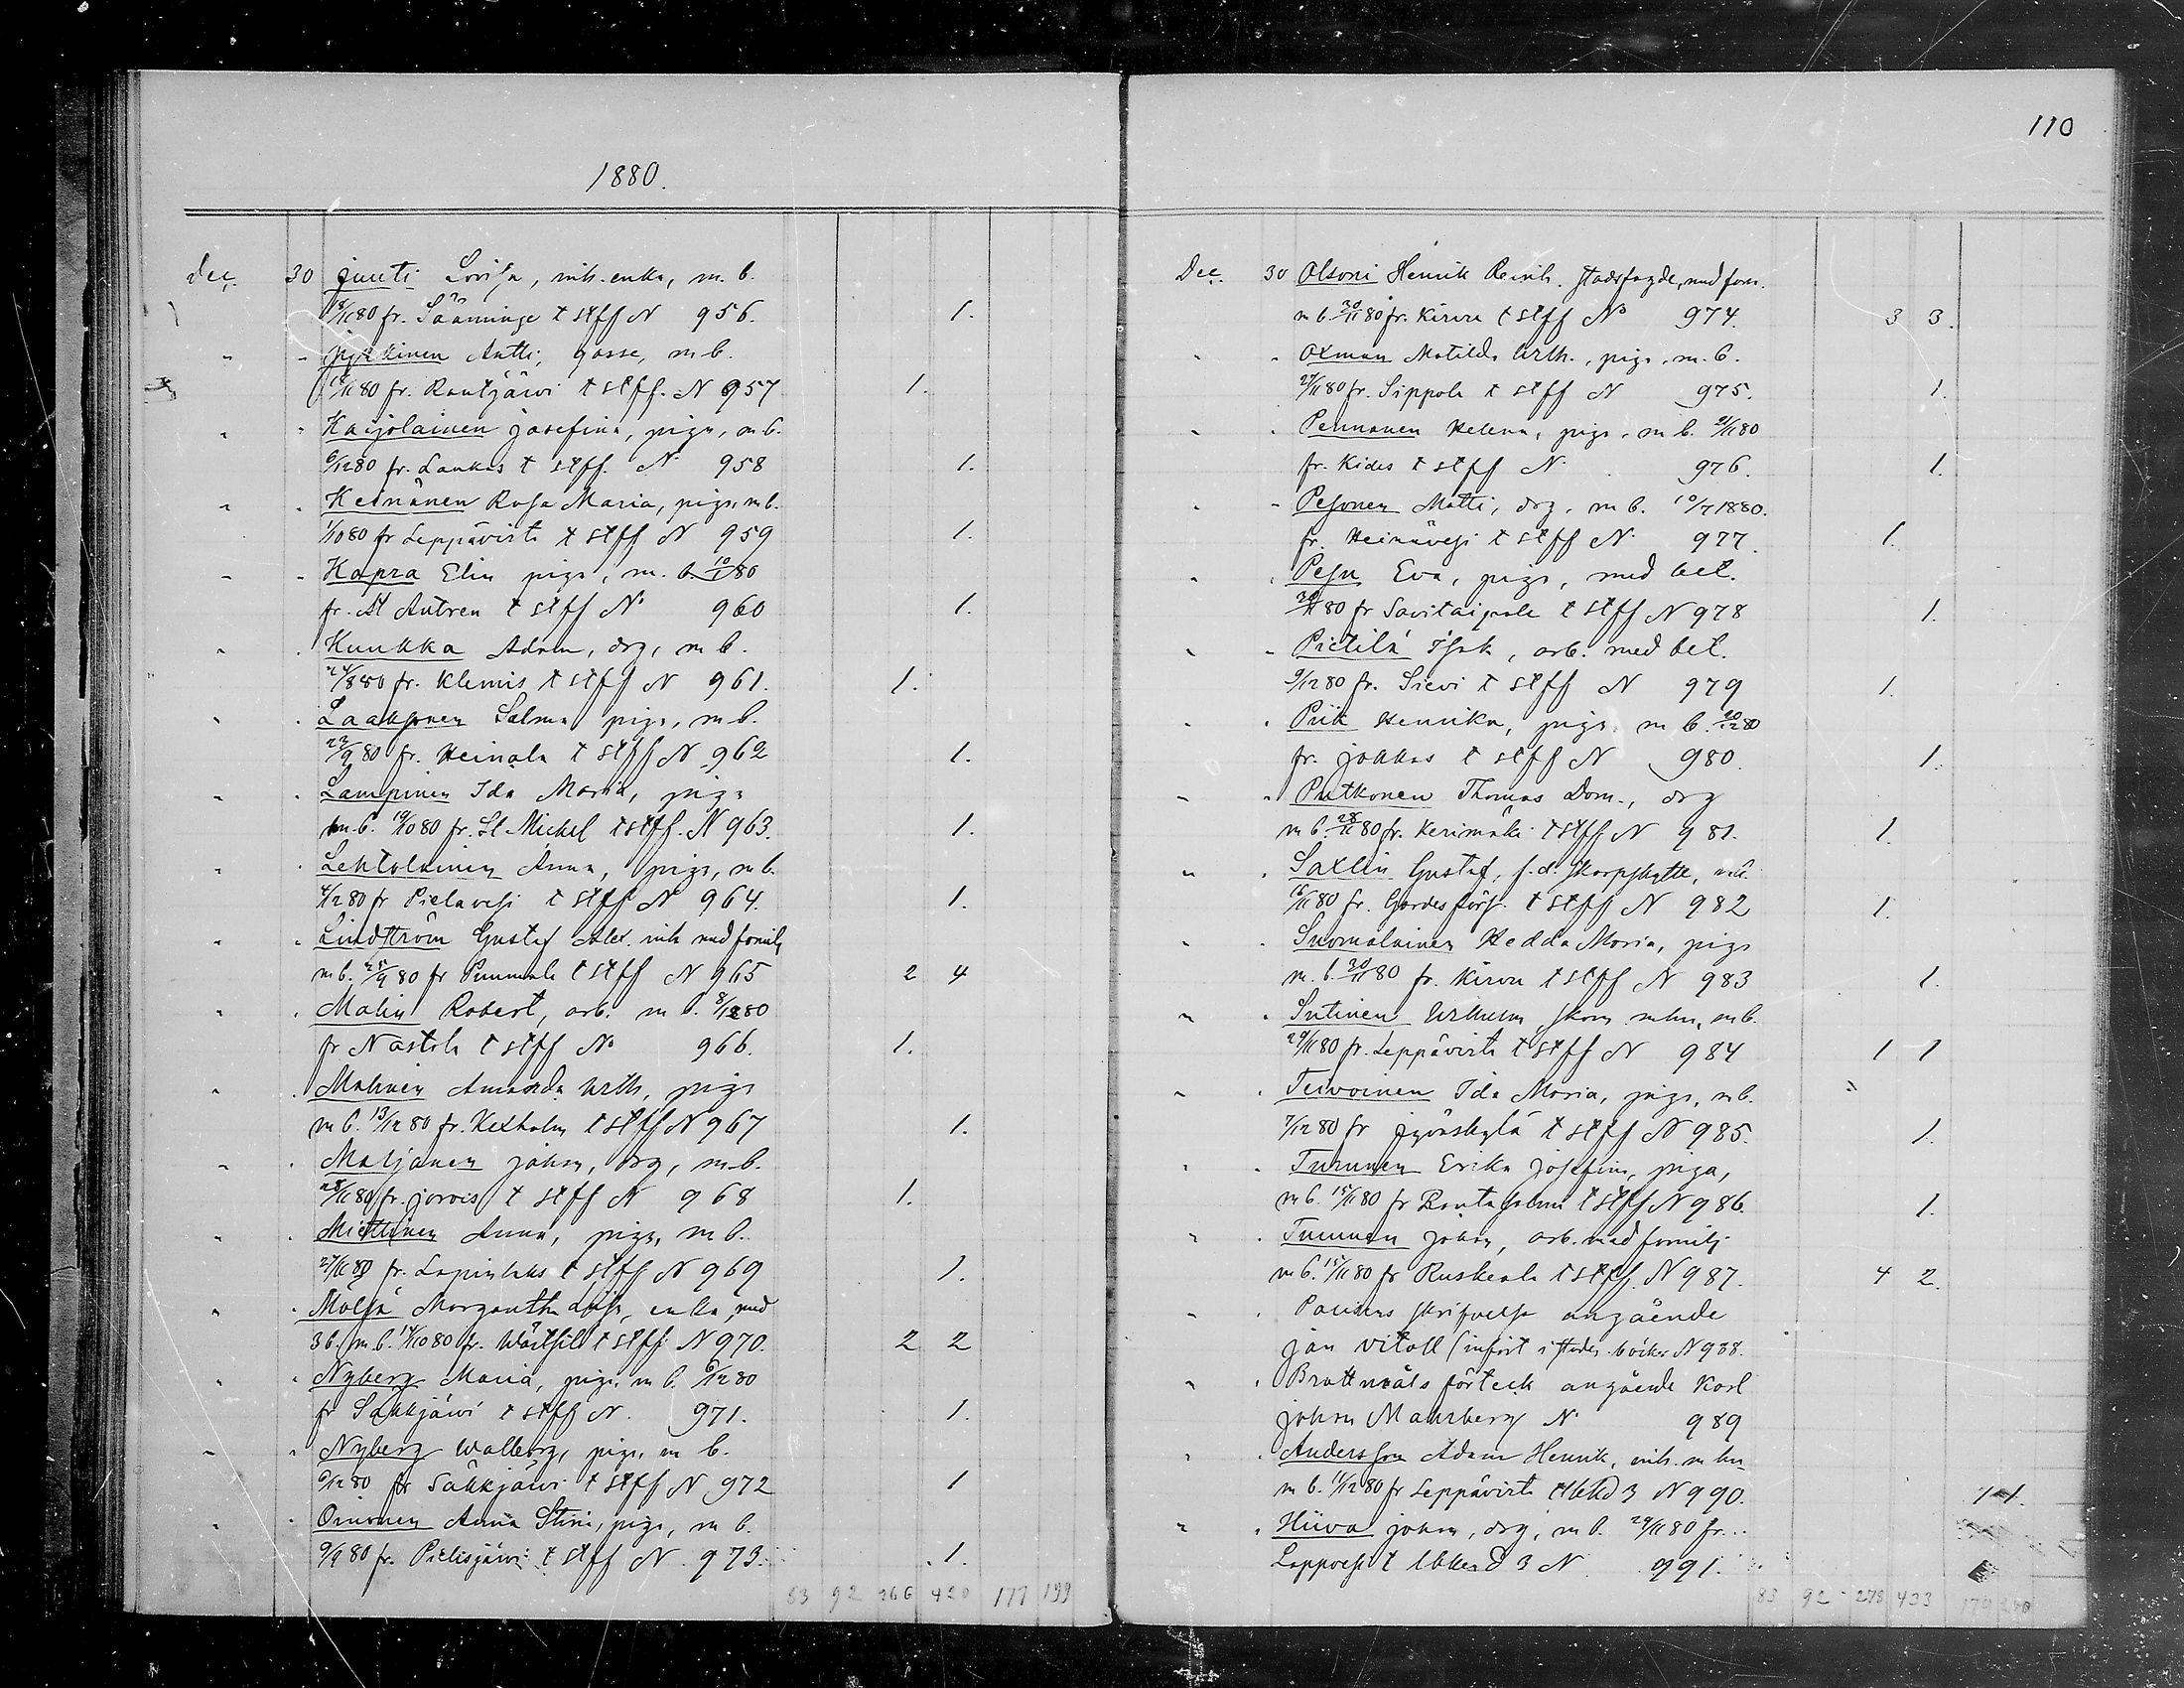 1880.
Dec. 30 Juuti Lovisa, inh. enka, m. b.
18/11 80 fr. Sääminge t stff N 956. 1.
" " Jyrkinen Antti, gosse, m b.
80 fr. Rautjärvi t stff. N 957 1.
" " Karjolainen Josefina, piga, m b.
6/12 80 fr. Laukas t stff. N 958 1.
" " Heinänen Rosa Maria, piga, m b.
1/10 80 fr Leppävirta t stff N 959 1.
" " Kapra Elin piga, m. b. 80
fr. St Antrea t stff No 960 1.
" " Kuukka Adam, drg, m b.
80 fr. Klemis t stff N 961. 1.
" " Laaksonen Salma piga, m b.
22/9 80 fr. Heinola t stff N 962 1.
" " Lampinen Ida Maria, piga
m. b. 19/10 80 fr. St Michel t stff. N 963. 1.
" " Lehtolainen Anna, piga, m b.
4/12 80 fr Pielavesi t stff N 964. 1.
" " Lindström Gustaf Alex. inh med familj
m b. 25/9 80 fr Pummala t stff N 965 2 4
" " Malin Robert, arb. m b. 8/12 80
fr Nastola t stff No 966. 1.
" " Malmin Amanda Wilh, piga
m b. 13/12 80 fr. Kexholm t stff N 967 1.
" " Matjanen Johan, drg, m b.
28/11 80 fr. Jorois t stff N 968 1.
" " Miettinen Anna, piga, m b.
27/11 80 fr. Lapinlaks t stff N 969 1.
" " Molsä Margaretha Lovisa, enka, med
3 b. m b. 14/10 80 fr. Wärtsilä t stff N 970. 2 2
" " Nyberg Maria, piga m b. 6/12 80
fr Säkkjärvi t stff N. 971. 1.
" " Nyberg Walborg, piga, m b.
6/12 80 fr Säkkjärvi t stff N 972 1
" " Oinonen Anna Stina, piga, m b.
9/9 80 fr. Pielisjärvi t stff N. 973. 1.
83 92 266 420 177 199
110
Dec. 30 Olsoni Henrik Reinh. stadsfogde, med fam.
m b. 30/11 80 fr. Kirvu t stff No 974. 3 3.
" " Oxman Matilda Wilh., piga, m. b.
29/11 80 fr. Sippola t stff N 975. 1.
" " Pennanen Helena, piga, m b. 80
fr. Kides t stff N. 976. 1.
" " Pesonen Matti, drg, m b. 10/7 1880.
fr. Heinävesi t stff N. 977. 1.
" " Pesu Eva, piga, med bet.
80 fr Savitaipale t stff N 978 1.
" " Pietilä Isak, arb. med bet.
9/12 80 fr. Sievi t stff N 979 1.
" " Piik Henrika, piga. m b. 20/12 80
fr. Jokkas t stff N 980. 1.
" " Putkonen Thomas Dom., drg
m b. 28/11 80 fr. Kerimäki t stff N 981. 1.
" " Saxlin Gustaf, f. d. skarpskytte,
16/11 80 fr. Gardesförs. t stff N 982 1.
" " Suomalainen Hedda Maria, piga
m. b. 30/11 80 fr. Kirvu t stff N 983 1.
" " Sutinen Wilhelm, skom. m hu, m b.
29/11 80 fr. Leppävirta t stff N 984 1 1
" " Teivoinen Ida Maria, piga, m b.
7/12 80 fr Jyväskylä t stff N 985. 1.
" " Turunen Erika Josefina, piga,
m b. 15/11 80 fr Rantasalmi t stff N 986. 1.
" " Tummen Johan, arb. med familj
m b. 15/11 80 fr Ruskeala t stff. N 987. 4 2.
" " Paucens skrifvelse angående
Jan Vitoll (infört i stades böcker N 988.
" " Brottmåls förteck angående Karl
Johan Mahrberg N. 989
" " Andersson Adam Henrik, inh. m hu
m b. 11/12 80 fr Leppävirta t lbkd 3 N 990. 1 1.
" " Hiiva Johan, drg, m b. 29/11 80 fr...
Lappvesi t lbken d 3 N. 991.
83 92 278 433 178 200